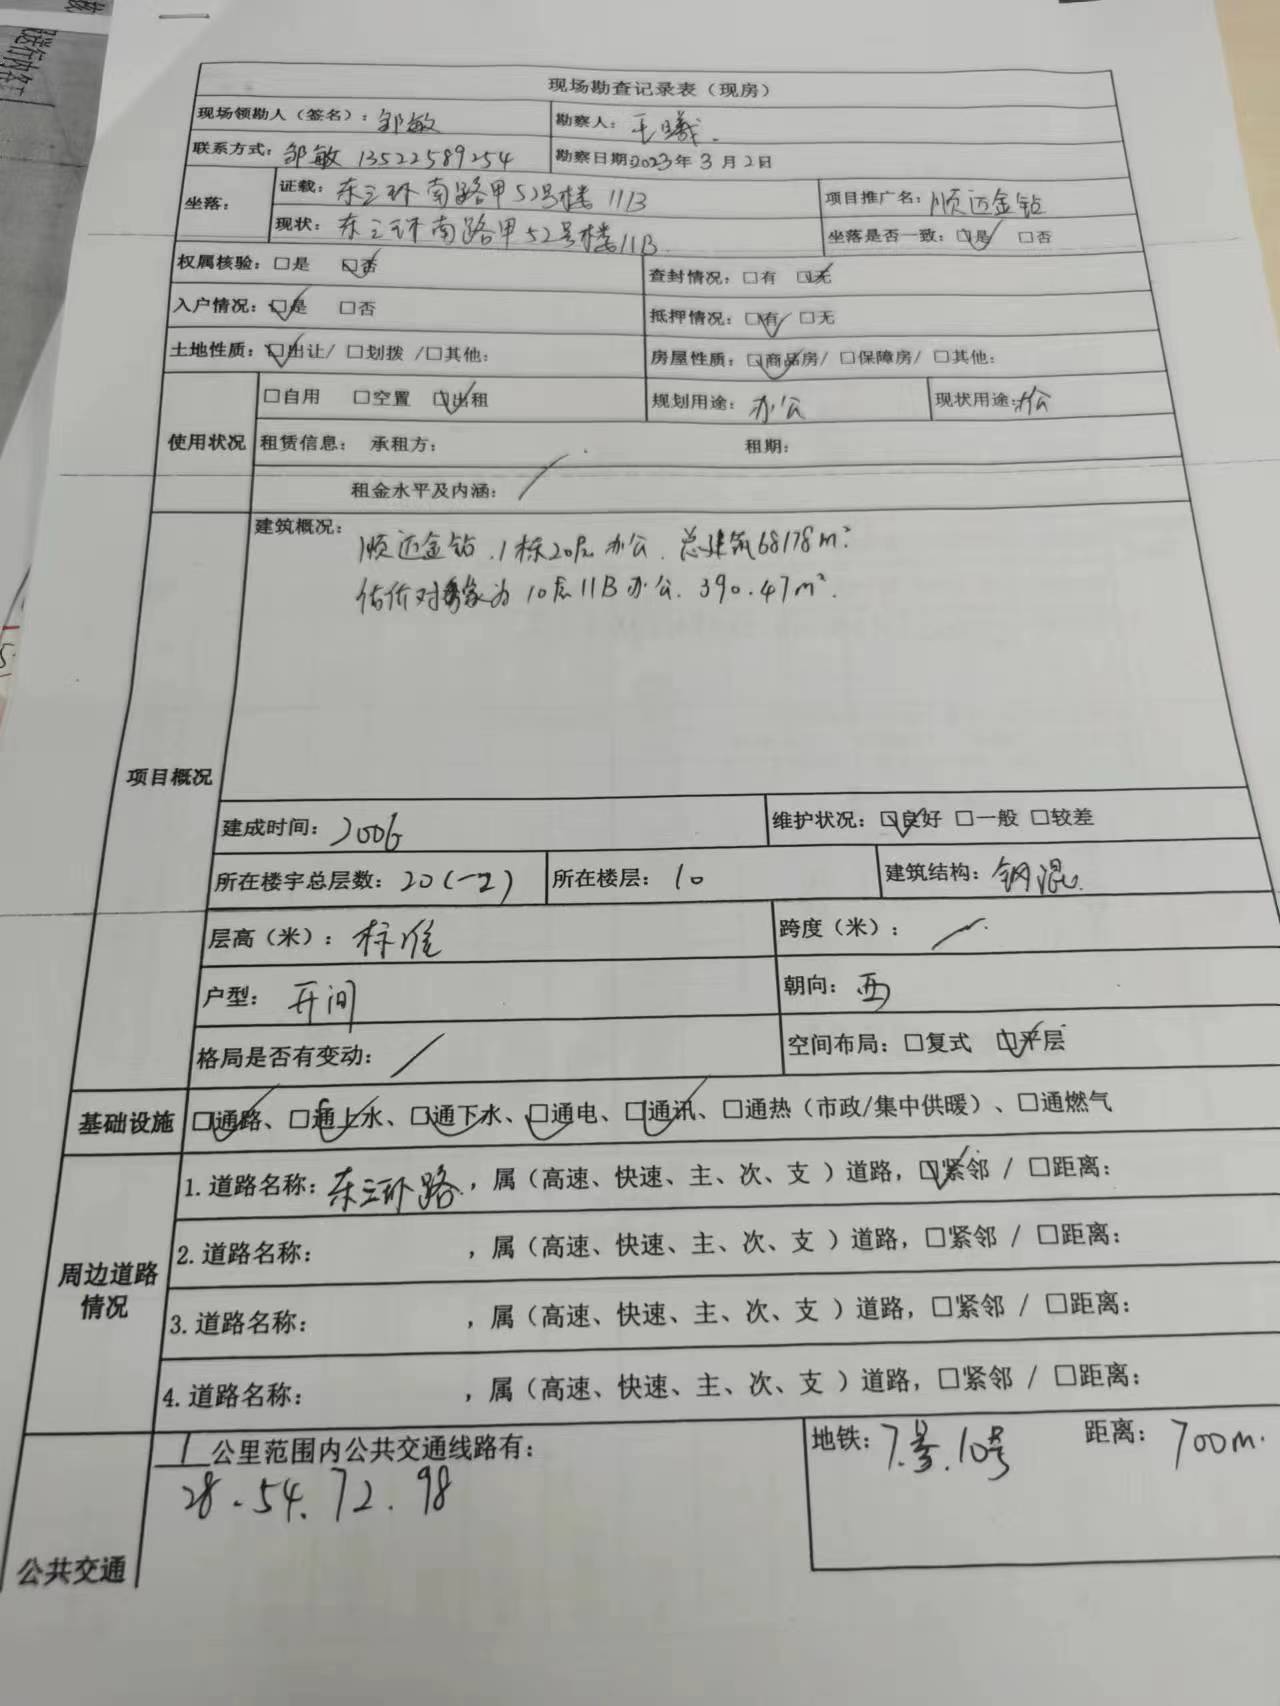 现场勘查记录表（现房）
现场领勘人（签名）：邹敏 勘察人：王曦.
联系方式：邹敏 13522589254 勘察日期：2023年3月2日
坐落： 证载：东三环南路甲52号楼 11B 项目推广名：顺迈金钻
现状：东三环南路甲52号楼11B. 坐落是否一致：☑是 □否
权属核验：□是 ☑否 查封情况：□有 ☑无
入户情况：☑是 □否 抵押情况：☑有 □无
土地性质：☑出让/ □划拨 /□其他： 房屋性质：☑商品房/ □保障房/ □其他：
使用状况 □自用 □空置 ☑出租 规划用途：办公 现状用途：办公
租赁信息： 承租方： 租期：
租金水平及内涵： /
项目概况 建筑概况：顺迈金钻.1栋20层办公.总建筑68178m².
估价对象为10层11B办公.390.47m².
建成时间：2006 维护状况：☑良好 □一般 □较差
所在楼宇总层数：20(-2) 所在楼层：10 建筑结构：钢混.
层高（米）：标准 跨度（米）： /
户型：开间 朝向：西
格局是否有变动： / 空间布局：□复式 ☑平层
基础设施 ☑通路、☑通上水、☑通下水、☑通电、☑通讯、□通热（市政/集中供暖）、□通燃气
周边道路情况 1.道路名称：东三环路，属（高速、快速、主、次、支 ）道路，☑紧邻 / □距离：
2.道路名称： ，属（高速、快速、主、次、支 ）道路，□紧邻 / □距离：
3.道路名称： ，属（高速、快速、主、次、支 ）道路，□紧邻 / □距离：
4.道路名称： ，属（高速、快速、主、次、支 ）道路，□紧邻 / □距离：
公共交通 1 公里范围内公共交通线路有： 地铁：7号.10号 距离：700m.
28.54.72.98